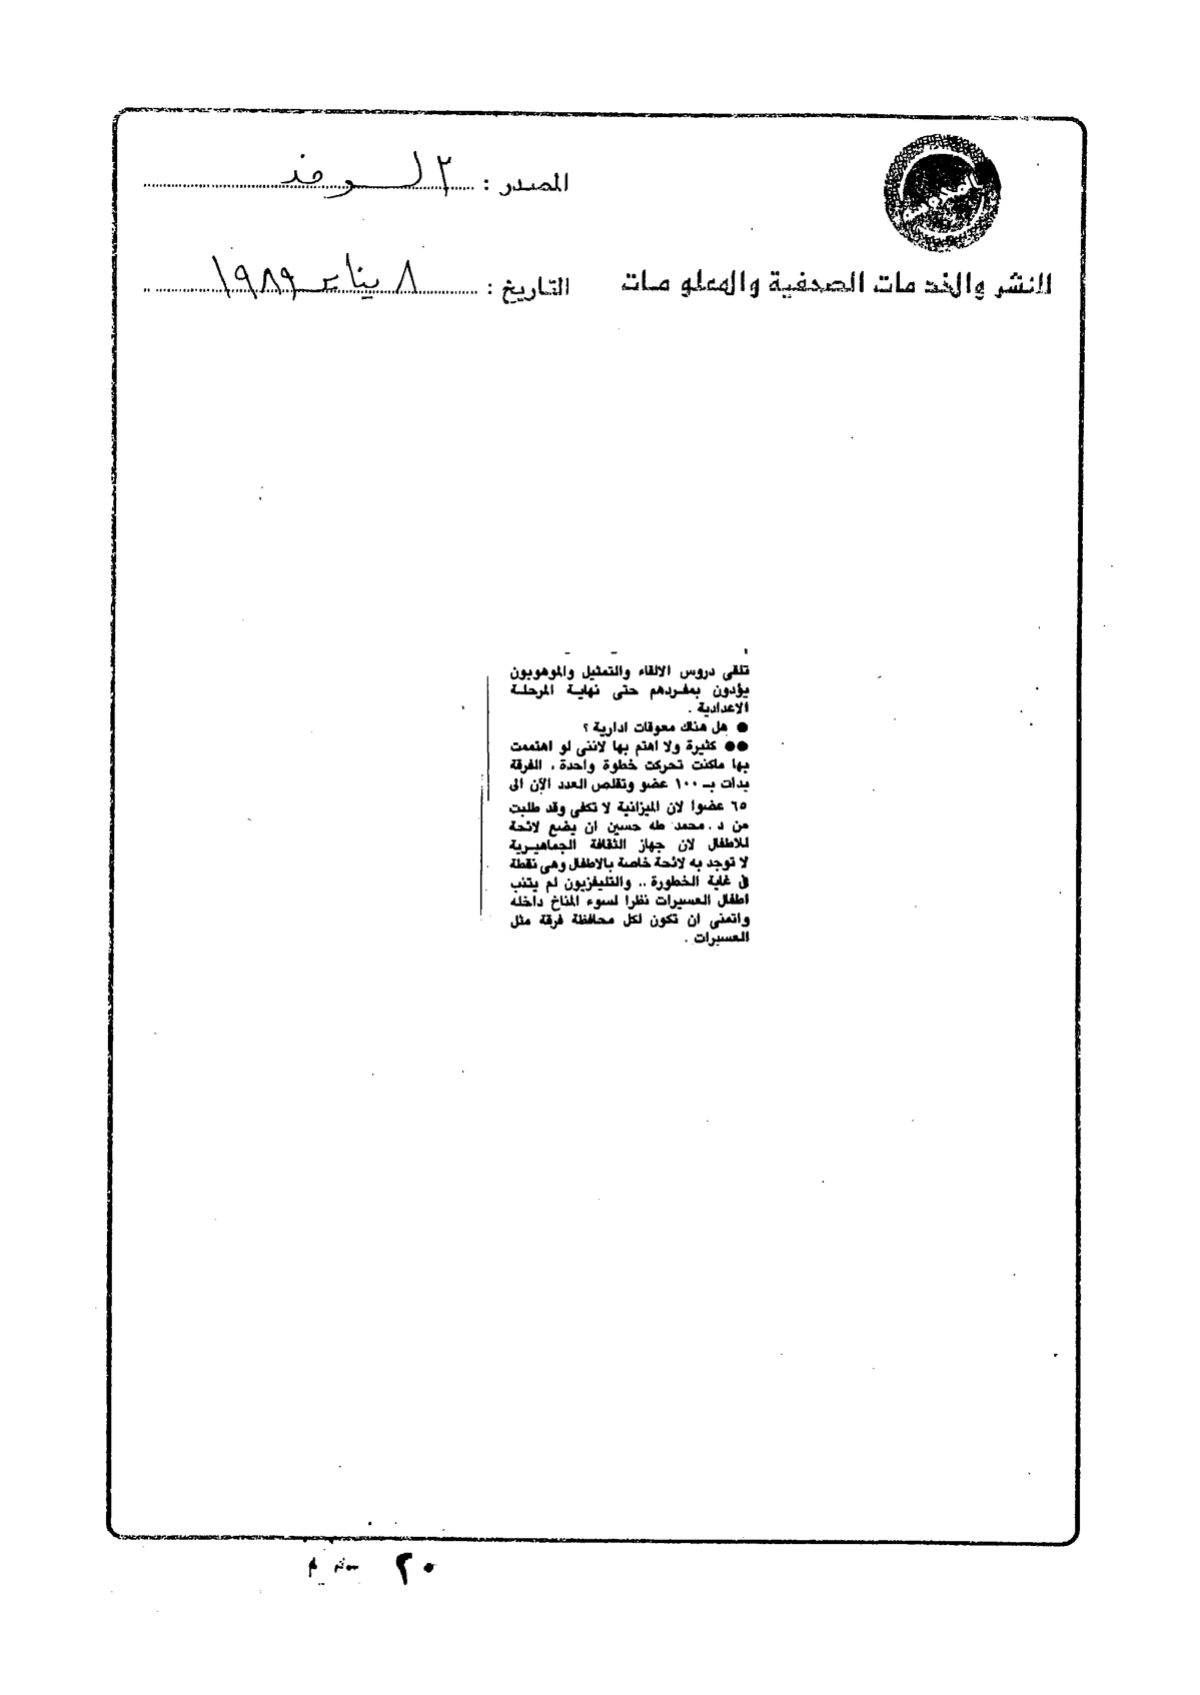 المصدر : الوفد
للنشر والخدمات الصحفية والمعلومات
التاريخ : ٨ يناير ١٩٨٩
تلقى دروس الالقاء والتمثيل والموهوبون
يؤدون بمفردهم حتى نهاية المرحلة
الاعدادية .
● هل هناك معوقات ادارية ؟
●● كثيرة ولا اهتم بها لاننى لو اهتممت
بها ماكنت تحركت خطوة واحدة . الفرقة
بدات بـ ١٠٠ عضو وتقلص العدد الآن الى
٦٥ عضوا لان الميزانية لا تكفى وقد طلبت
من د . محمد طه حسين ان يضع لائحة
للاطفال لان جهاز الثقافة الجماهيرية
لا توجد به لائحة خاصة بالاطفال وهى نقطة
فى غاية الخطورة .. والتليفزيون لم يتبن
اطفال العسيرات نظرا لسوء المناخ داخله
واتمنى ان تكون لكل محافظة فرقة مثل
العسيرات .
٢٠